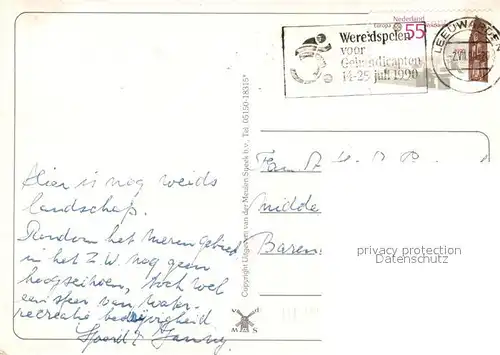 Nederland
55
Europa
Wereldspelen
voor
Gehandicapten
14-25 juli 1990
LEEUWARDEN
Hier is nog weids
landschap.
Rondom het meren gebied
in het Z.W. nog geen
hoogseizoen, toch wel
een sfeer van water-
recreatie bedrijvigheid
Sjoerd
Copyright Uitgeverij van der Meulen Sneek b.v., Tel. 05150-18315*
Fam
Midde
Baren
privacy protection
Datenschutz
M S